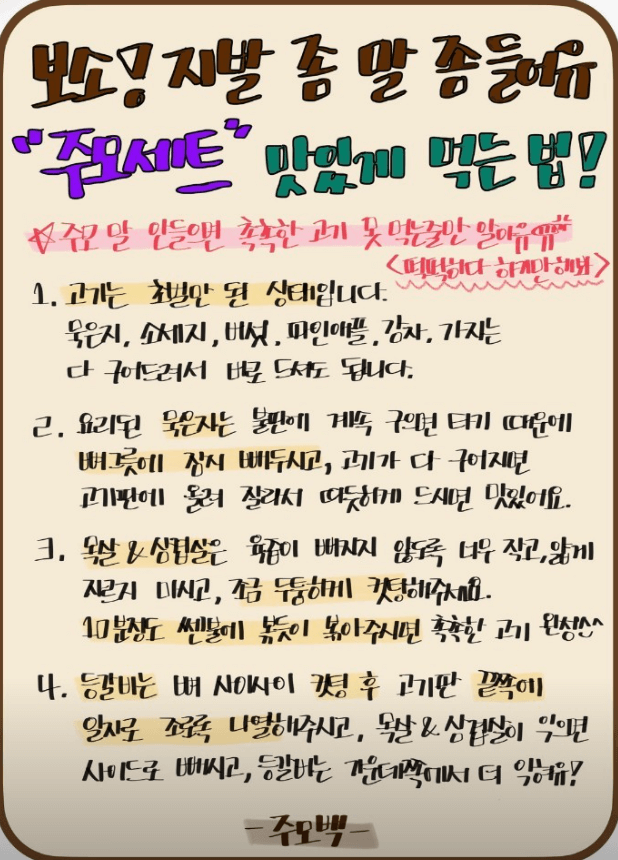 보소! 지발 좀 말 좀 들어유
"주모세트" 맛있게 먹는 법!
☆주모 말 안들으면 촉촉한 고기 못 먹는줄만 알아유ㅠㅠ
<퍽퍽하다 하지만해봐>
1. 고기는 초벌만 된 상태입니다.
묵은지, 소세지, 버섯, 파인애플, 감자, 가지는
다 구어드려서 바로 드셔도 됩니다.
2. 요리된 묵은지는 불판에 계속 구으면 타기 때문에
뼈그릇에 잠시 빼두시고, 고기가 다 구어지면
고기판에 올려 잘라서 따듯하게 드시면 맛있어요.
3. 목살 & 삼겹살은 육즙이 빠지지 않도록 너무 작고, 얇게
자르지 마시고, 조금 두툼하게 컷팅해주세요.
10분정도 쎈불에 볶듯이 볶아주시면 촉촉한 고기 완성^^
4. 등갈비는 뼈 사이사이 컷팅 후 고기판 끝쪽에
일자로 조로록 나열해주시고, 목살 & 삼겹살이 익으면
사이드로 빼시고, 등갈비는 가운데쪽에서 더 익혀유!
-주모백-